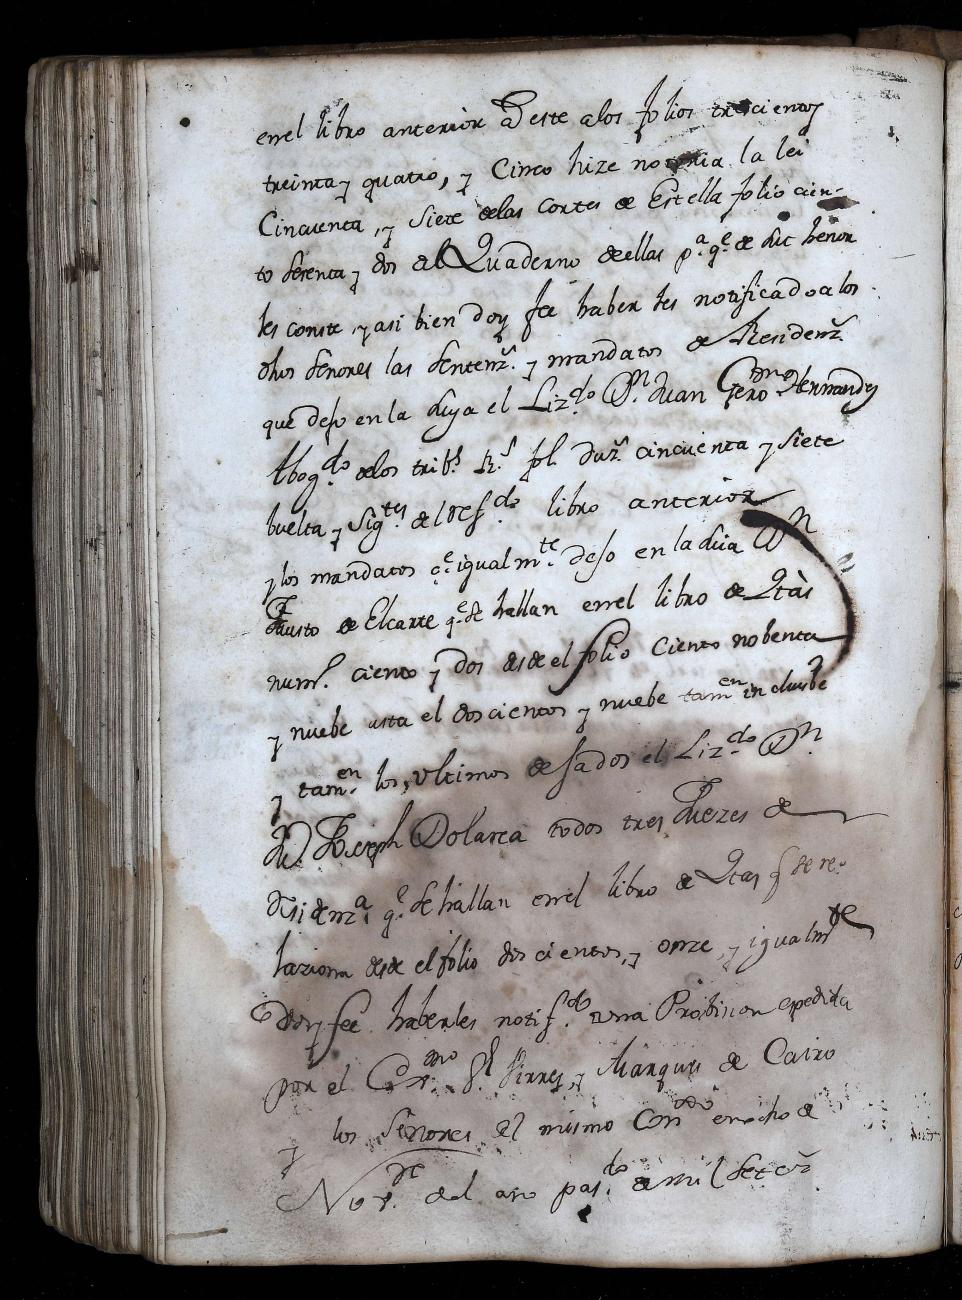 en el libro anterior à este a los folios trescientos
treinta, y quatro, y Cinco hize notoria la lei
Cinquenta, y siete de las cortes de Estella folio cien-
to setenta, y dos del Quaderno de ellas pª. qe. de sus
les conste, y asi bien doy fee haber les notificado a los
dhos señores las sentenzˢ. y mandatos de Residenzª.
que deso en la suya el Lizdo. Dn. Juan Geronmo. Hernandez
Abogdo. de los tribs. Rs. fol. cincuenta y siete
buelta, y sigtes. del refdo. libro anterior
y los mandatos qe. igualmte. deso en la suia Dn.
Fausto de Elcarte qe. se hallan en el libro de Qtàs
numº. ciento y dos desde el folio ciento nobenta
y nuebe asta el doscientos y nuebe tamen. inclusibe
y tamen. los, ultimos desados el Lizdo. Dn.
Joseph Dolarea todos tres Juezes de
residenzª. qe. se hallan en el libro de Qtas qe. se re-
laziona desde el folio doscientos, y onze, y igualmte
doy fee haberles notifdo. una Probision espedida
por el Exmo. Sr. Virrey, y Marques de Cairo
y los Señores del mismo Conso. en ocho de
Nore. del año pasdo. de mil setezs.